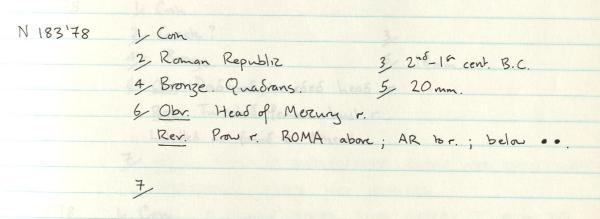 N 183'78 1/ Coin
2/ Roman Republic 3/ 2nd-1st cent. B.C.
4/ Bronze Quadrans. 5/ 20mm.
6/ Obv. Head of Mercury r.
Rev. Prow r. ROMA above ; AR to r. ; below ••.
7/